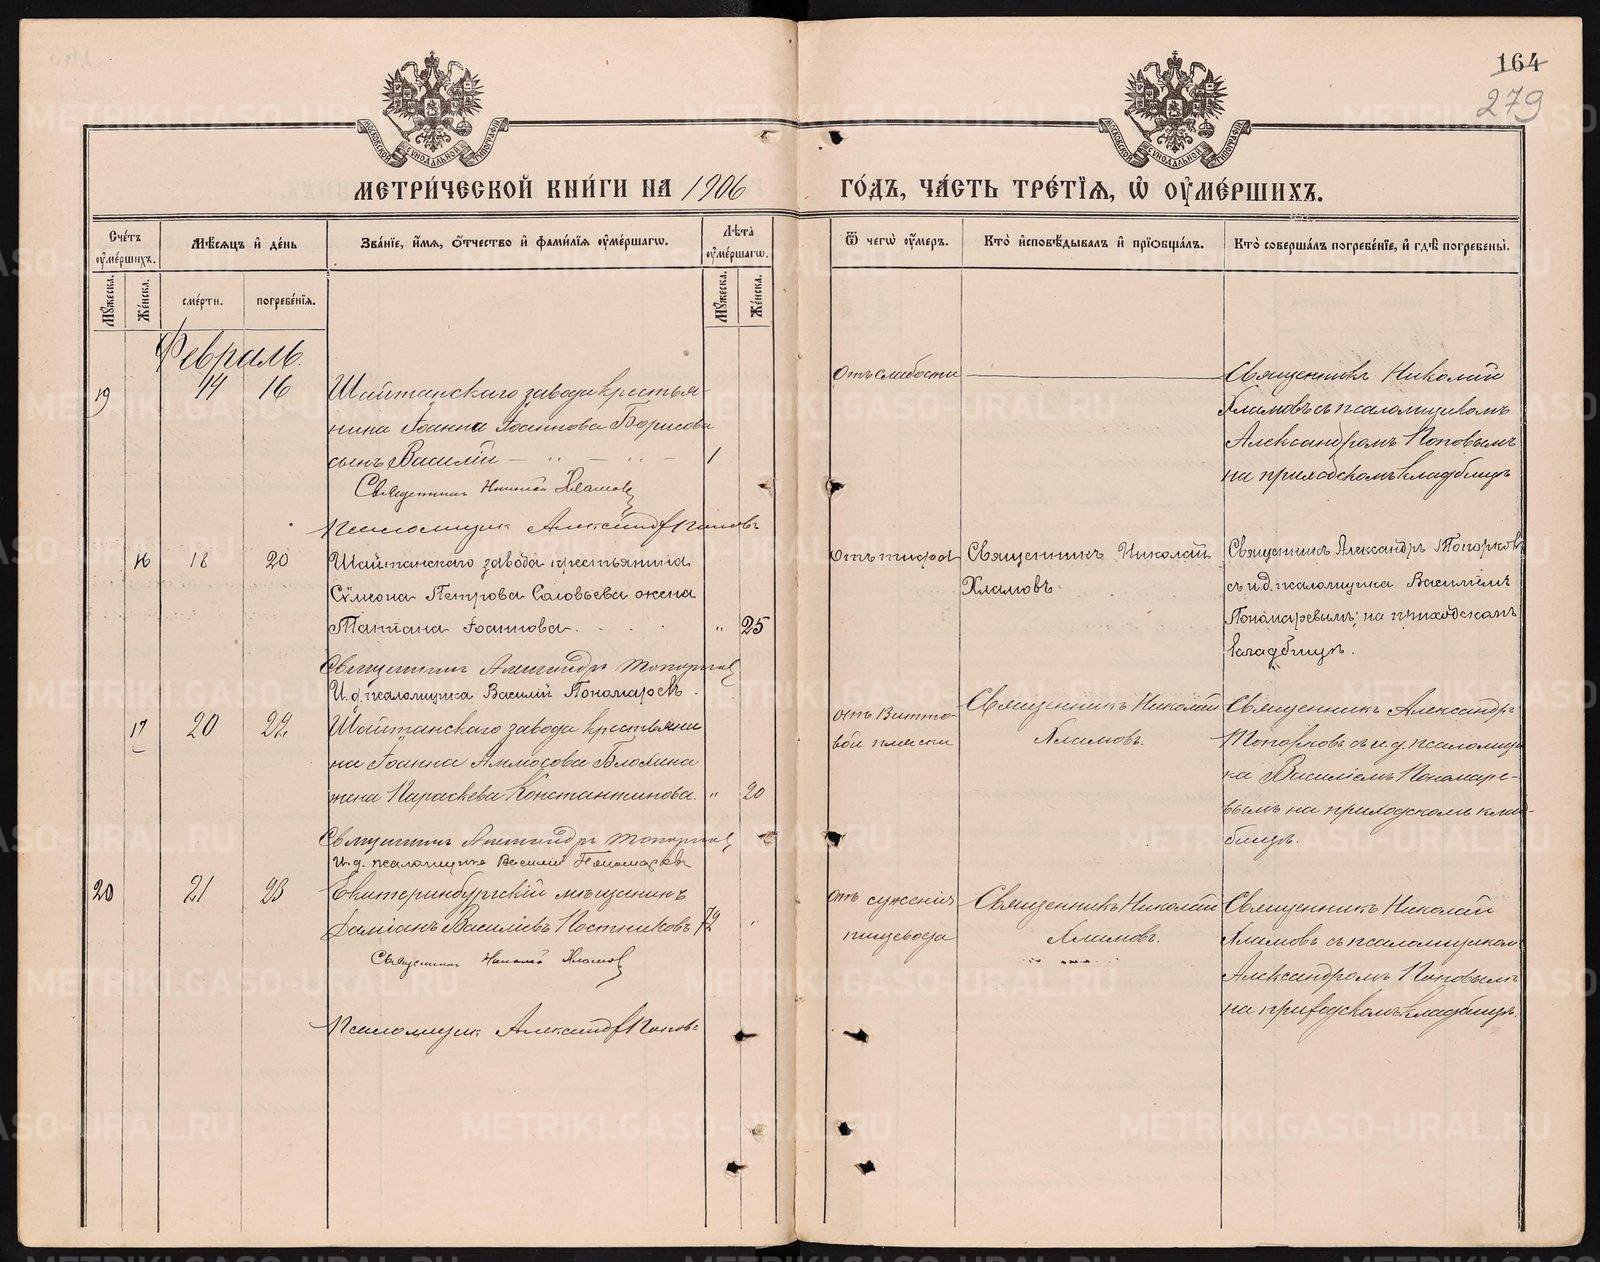 164
279
МОСКОВСКОЙ СУНОДАЛЬНОЙ ТИПОГРАФІИ
МОСКОВСКОЙ СУНОДАЛЬНОЙ ТИПОГРАФІИ
МЕТРИ́ЧЕСКОЙ КНИ́ГИ НА 1906
ГО́ДЪ, ЧА́СТЬ ТРЕ́ТІѦ, Ѡ҆ ОУ҆МЕ́РШИХЪ.
Сче́тъ оу҆ме́ршихъ.
Мѣ́сѧцъ и҆ де́нь
Зва́нїе, и҆́мѧ, ѻ҆́тчество и҆ фами́лїѧ оу҆ме́ршагѡ.
Лѣ́та оу҆ме́ршагѡ.
Ѿ чегѡ̀ оу҆́меръ.
Кто̀ и҆сповѣ́дывалъ и҆ прїѡбща́лъ.
Кто̀ соверша́лъ погребе́нїе, и҆ гдѣ̀ погребены̀.
Мꙋ́жеска.
Же́нска.
сме́рти.
погребе́нїѧ.
Мꙋ́жеска.
Же́нска.
Февраль.
19
14
16
Шайтанскаго завода крестья-
нина Іоанна Іоаннова Борисова
сынъ Василій
1
Священник Николай Хламов
Псаломщик Александр Попов
Отъ слабости
Священникъ Николай
Хламовъ съ псаломщикомъ
Александромъ Поповымъ
на приходскомъ кладбищѣ
16
18
20
Шайтанскаго завода крестьянина
Сѵмеона Петрова Соловьева жена
Татіана Іоаннова.
"
25
Священник Александр Топорков
И. д. псаломщика Василій Пономаревъ.
Отъ тифа
Священникъ Николай
Хламовъ.
Священникъ Александръ Топорковъ
съ и. д. псаломщика Василіемъ
Пономаревымъ; на приходскомъ
кладбищѣ.
17
20
22
Шайтанскаго завода крестьяни
на Іоанна Аммосова Блохина
жена Параскева Константинова.
"
20
Священник Александр Топорков
И. д. псаломщика Василій Пономаревъ
отъ Витто-
вой пляски
Священникъ Николай
Хламовъ.
Священникъ Александръ
Топорковъ съ и. д. псаломщи
ка Василіемъ Пономаре-
вымъ на приходскомъ клад-
бищѣ.
20
21
23
Екатеринбургскій мѣщанинъ
Даміанъ Василіевъ Постниковъ
72
"
Священник Николай Хламов
Псаломщик Александр Поповъ
Отъ суженія
пищевода
Священникъ Николай
Хламовъ.
Священникъ Николай
Хламовъ съ псаломщиком
Александромъ Поповымъ
на приходскомъ кладбищѣ.
METRIKI.GASO-URAL.RU